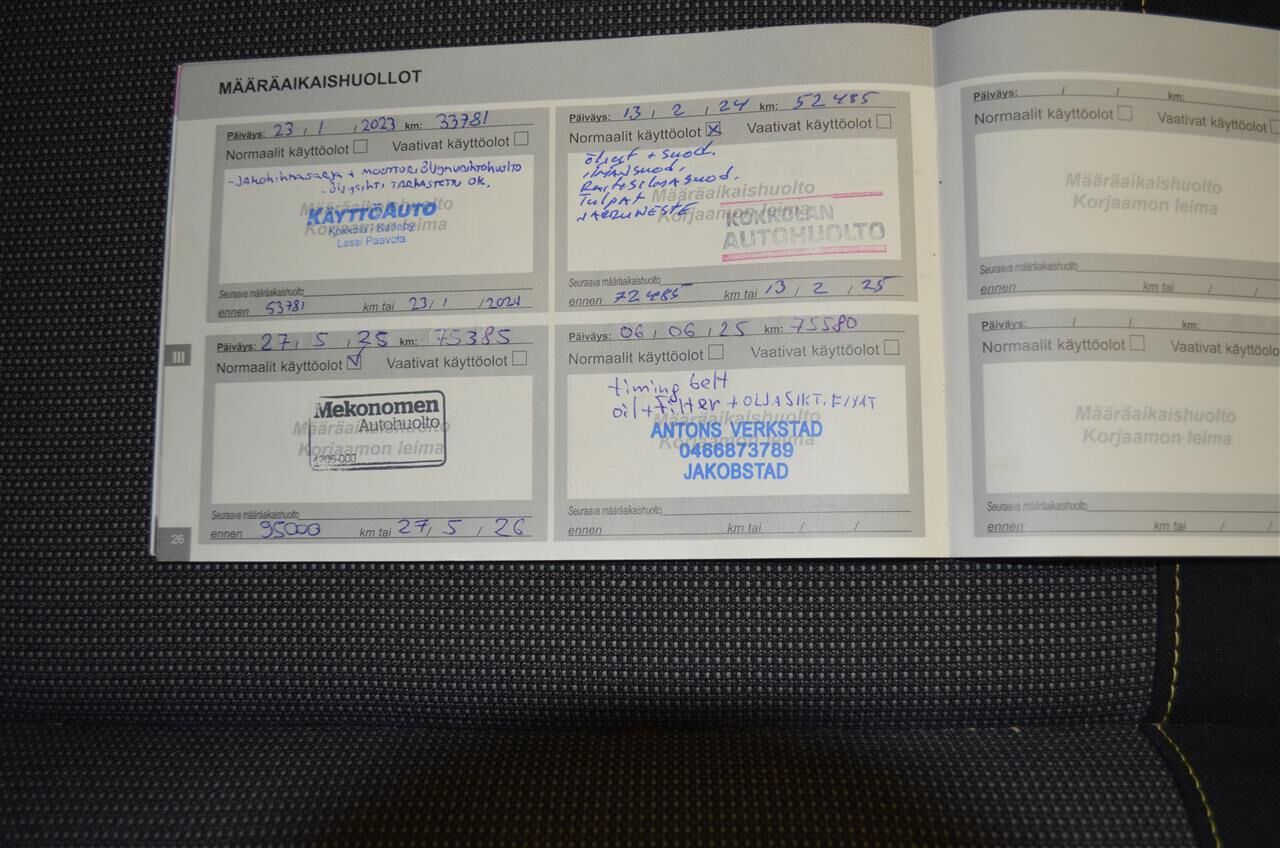 MÄÄRÄAIKAISHUOLLOT
Päiväys: 23 / 1 / 2023 km: 33781
Normaalit käyttöolot Vaativat käyttöolot
-JAKOHIHNASARJA + MOOTTORIÖLJYNVAIHTOHUOLTO
-ÖLJYSIHTI TARKASTETTU OK.
Määräaikaishuolto
Korjaamon leima
KÄYTTÖAUTO
Kokkola - Karleby
Lassi Paavola
Seuraava määräaikaishuolto
ennen 53781 km tai 23 / 1 / 2024
Päiväys: 13 / 2 / 24 km: 52485
Normaalit käyttöolot Vaativat käyttöolot
öljyt + suod.
ilmansuod.
Raitisilmasuod.
Tulpat
JARRUNESTE
Määräaikaishuolto
Korjaamon leima
KOKKOLAN
AUTOHUOLTO
Seuraava määräaikaishuolto
ennen 72485 km tai 13 / 2 / 25
Päiväys: 27 / 5 / 25 km: 75385
Normaalit käyttöolot Vaativat käyttöolot
Mekonomen
Autohuolto
Määräaikaishuolto
Korjaamon leima
Seuraava määräaikaishuolto
ennen 95000 km tai 27 / 5 / 26
Päiväys: 06 / 06 / 25 km: 75580
Normaalit käyttöolot Vaativat käyttöolot
timing belt
oil + filter + OLJASIKT. FIXAT
Määräaikaishuolto
Korjaamon leima
ANTONS VERKSTAD
0466873789
JAKOBSTAD
Seuraava määräaikaishuolto
ennen km tai / /
III
26
Päiväys: / / km:
Normaalit käyttöolot Vaativat käyttöolot
Määräaikaishuolto
Korjaamon leima
Seuraava määräaikaishuolto
ennen km tai / /
Päiväys: / / km:
Normaalit käyttöolot Vaativat käyttöolo
Määräaikaishuolto
Korjaamon leima
Seuraava määräaikaishuolto
ennen km tai / /